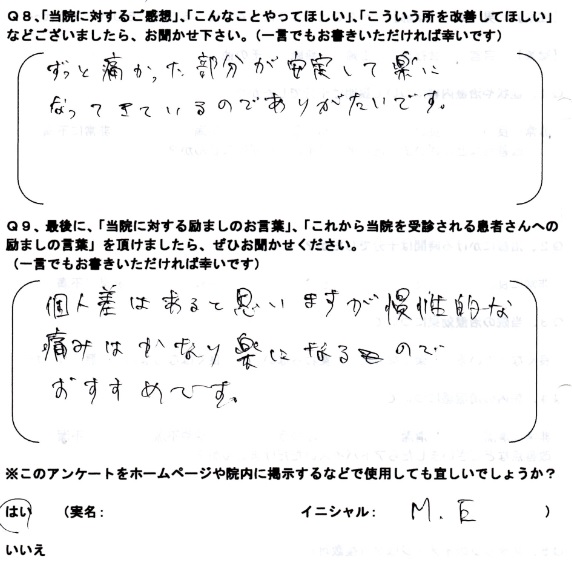 Q8、「当院に対するご感想」、「こんなことやってほしい」、「こういう所を改善してほしい」
などございましたら、お聞かせ下さい。（一言でもお書きいただければ幸いです）
ずっと痛かった部分が安定して楽に
なってきているのでありがたいです。
Q9、最後に、「当院に対する励ましのお言葉」、「これから当院を受診される患者さんへの
励ましの言葉」を頂けましたら、ぜひお聞かせください。
（一言でもお書きいただければ幸いです）
個人差はあると思いますが慢性的な
痛みはかなり楽になるので
おすすめです。
※このアンケートをホームページや院内に掲示するなどで使用しても宜しいでしょうか？
はい （実名： イニシャル： M.E ）
いいえ